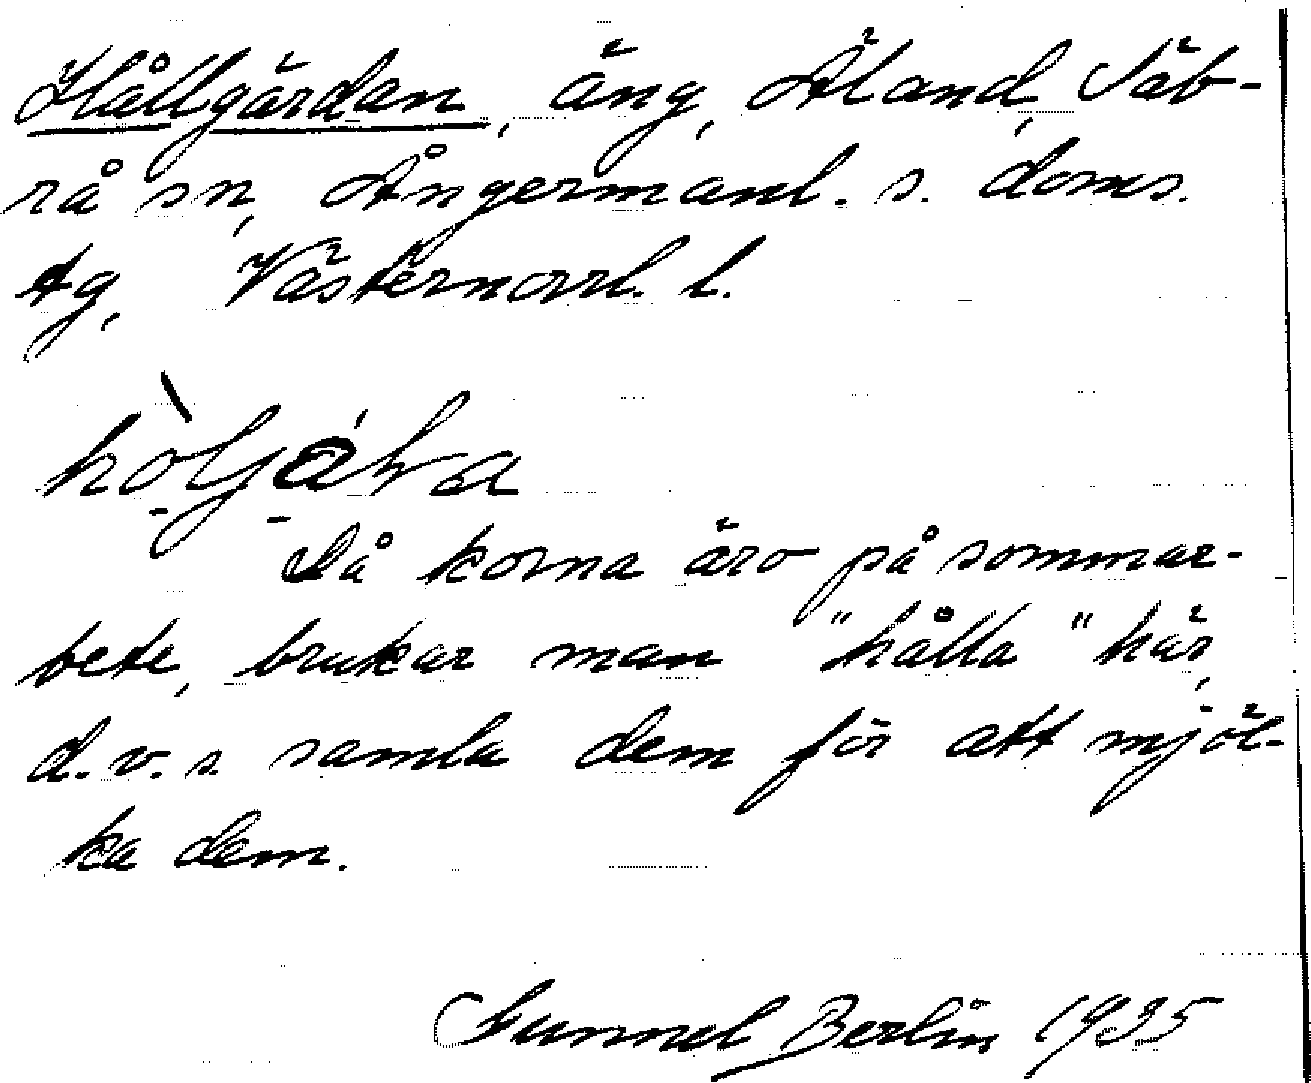 Hållgärdan, äng, Äland, Säb-
rå sn, Ångermanl. s. doms.
tg, Västernorrl. l.
Då korna äro på sommar-
bete, brukar man "hålla" här,
d.v.s. samla dem för att mjöl-
ka dem.
Gunnel Berlin 1935